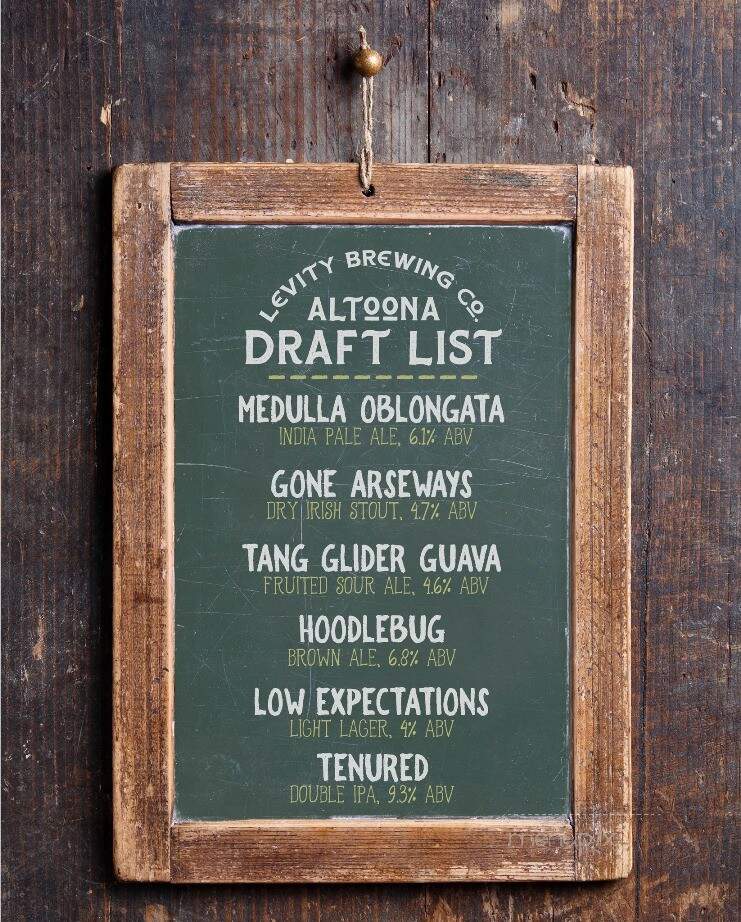 LEVITY BREWING CO.
ALTOONA
DRAFT LIST
MEDULLA OBLONGATA
INDIA PALE ALE, 6.1% ABV
GONE ARSEWAYS
DRY IRISH STOUT, 4.7% ABV
TANG GLIDER GUAVA
FRUITED SOUR ALE, 4.6% ABV
HOODLEBUG
BROWN ALE, 6.8% ABV
LOW EXPECTATIONS
LIGHT LAGER, 4% ABV
TENURED
DOUBLE IPA, 9.3% ABV